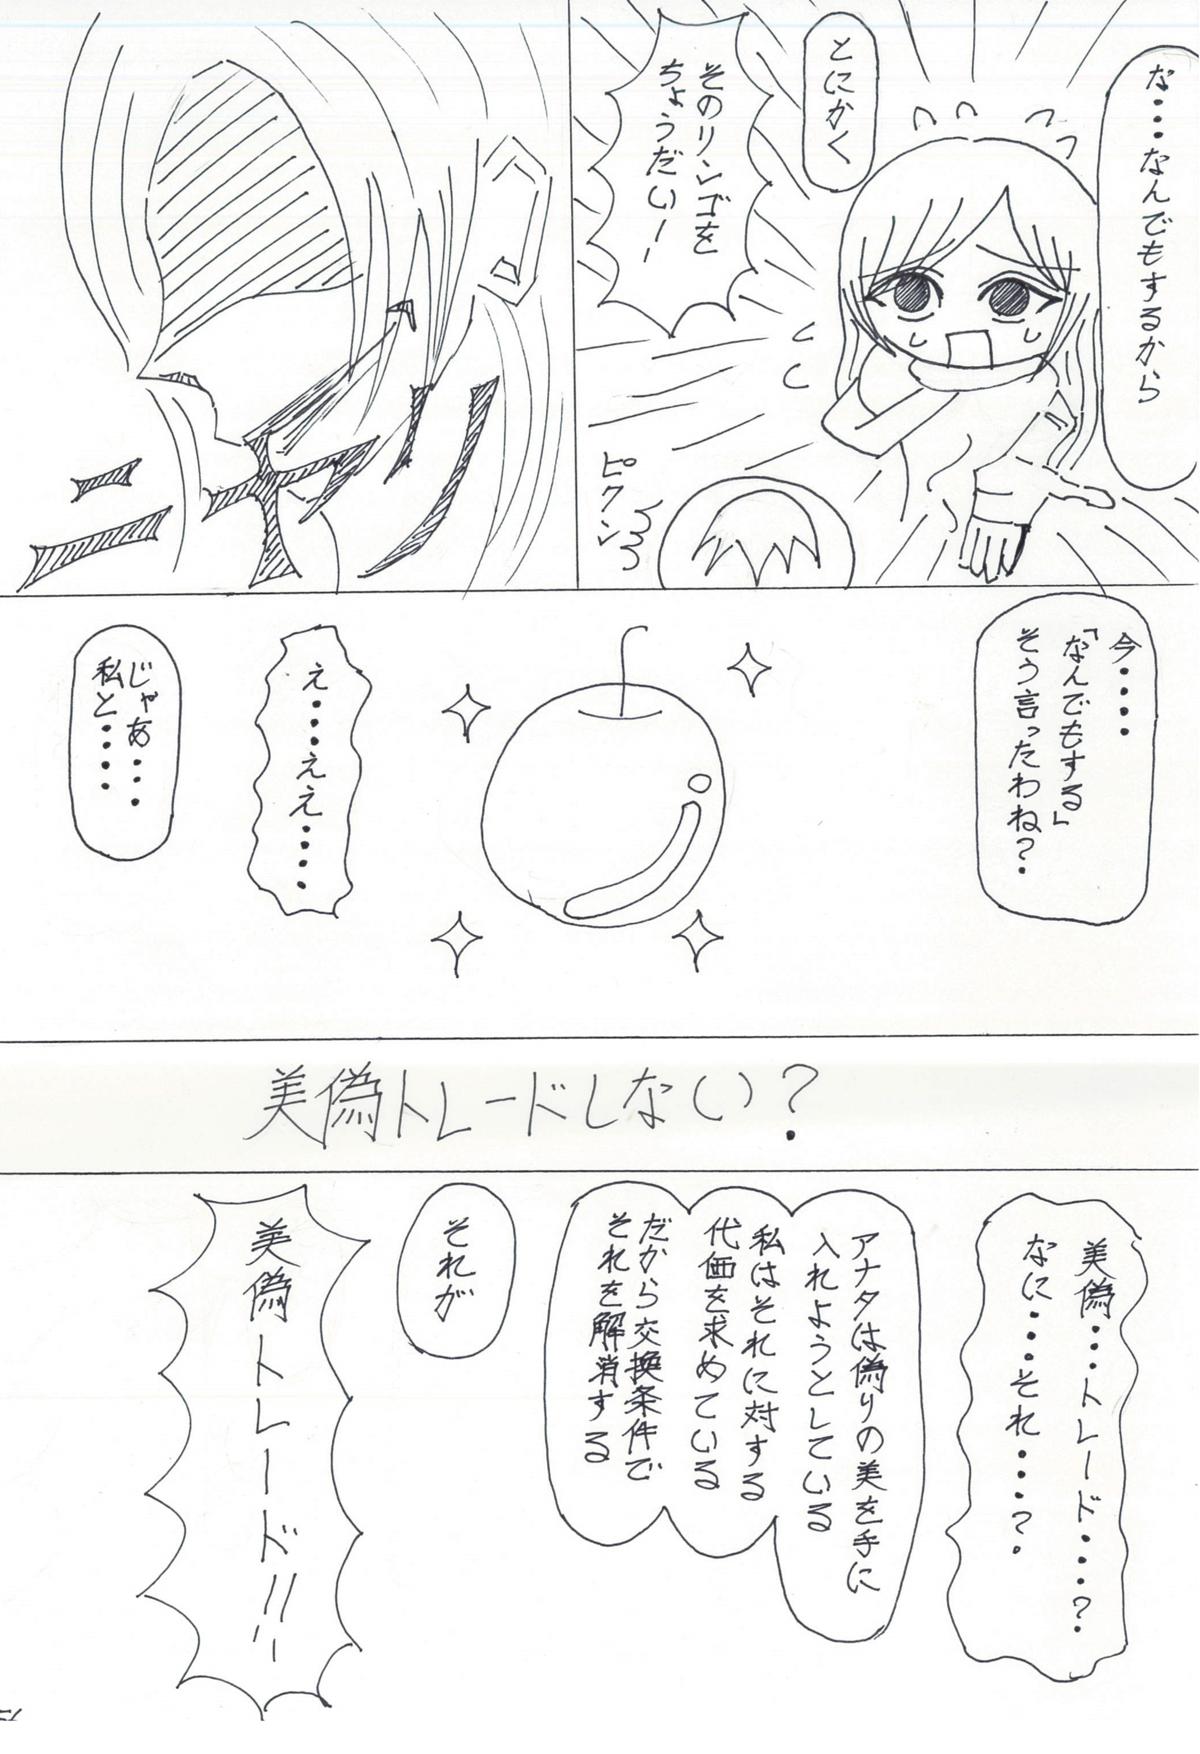 な・・・なんでもするから
とにかく
そのリンゴを
ちょうだいー
ピクン
ニヤ
今・・・・
「なんでもする」
そう言ったわね?
え・・・・ええ・・・・
じゃあ・・・・
私と・・・・
美偽トレードしない?
美偽・・・・トレード・・・・?
なに・・・・それ・・・・?
アナタは偽りの美を手に
入れようとしている
私はそれに対する
代価を求めている
だから交換条件で
それを解消する
それが
美偽トレード!!